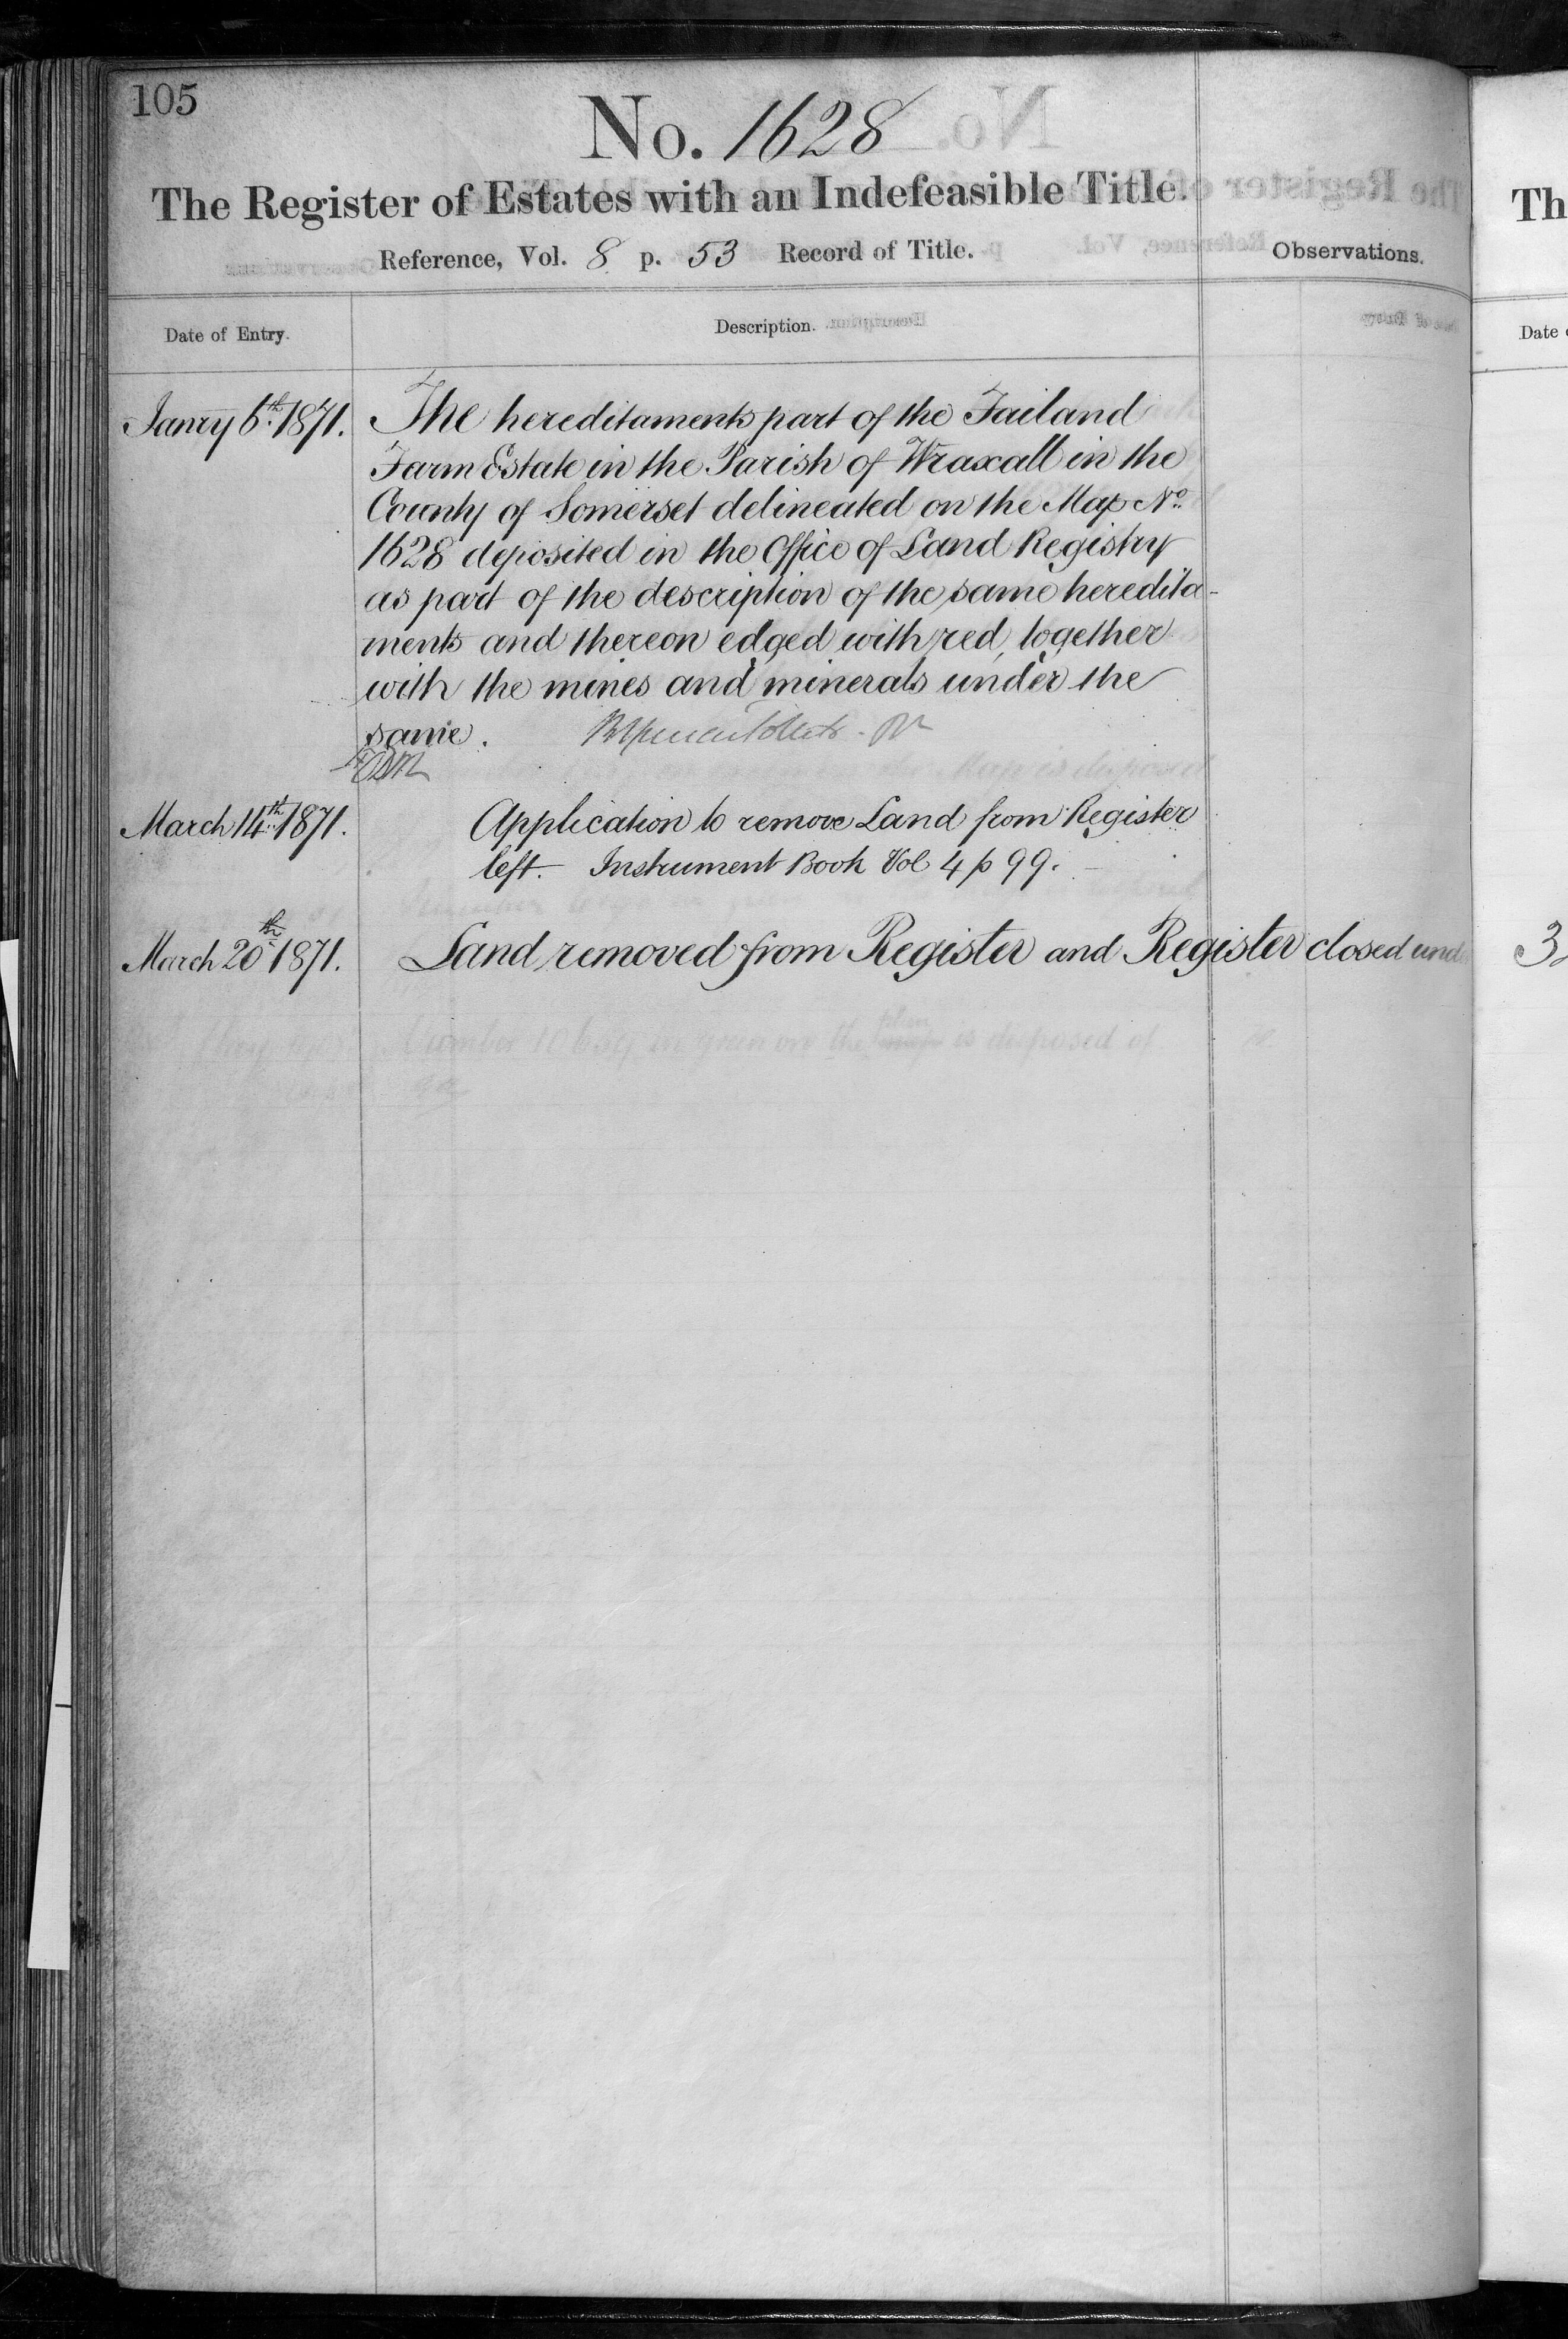 105
No. 1628
The Register of Estates with an Indefeasible Title.
Reference, Vol. 8 p. 53 Record of Title.
Observations.
Date of Entry.
Description.
Janry 6th. 1871.
The hereditaments part of the Failand
Farm Estate in the Parish of Wraxall in the
County of Somerset delineated on the Map No.
1628 deposited in the Office of Land Registry
as part of the description of the same heredita-
ments and thereon edged with red, together
with the mines and minerals under the
same.
March 14th 1871.
Application to remove Land from Register
left. Instrument Book Vol 4 p 99.
March 20th 1871.
Land removed from Register and Register closed und
Th
Date